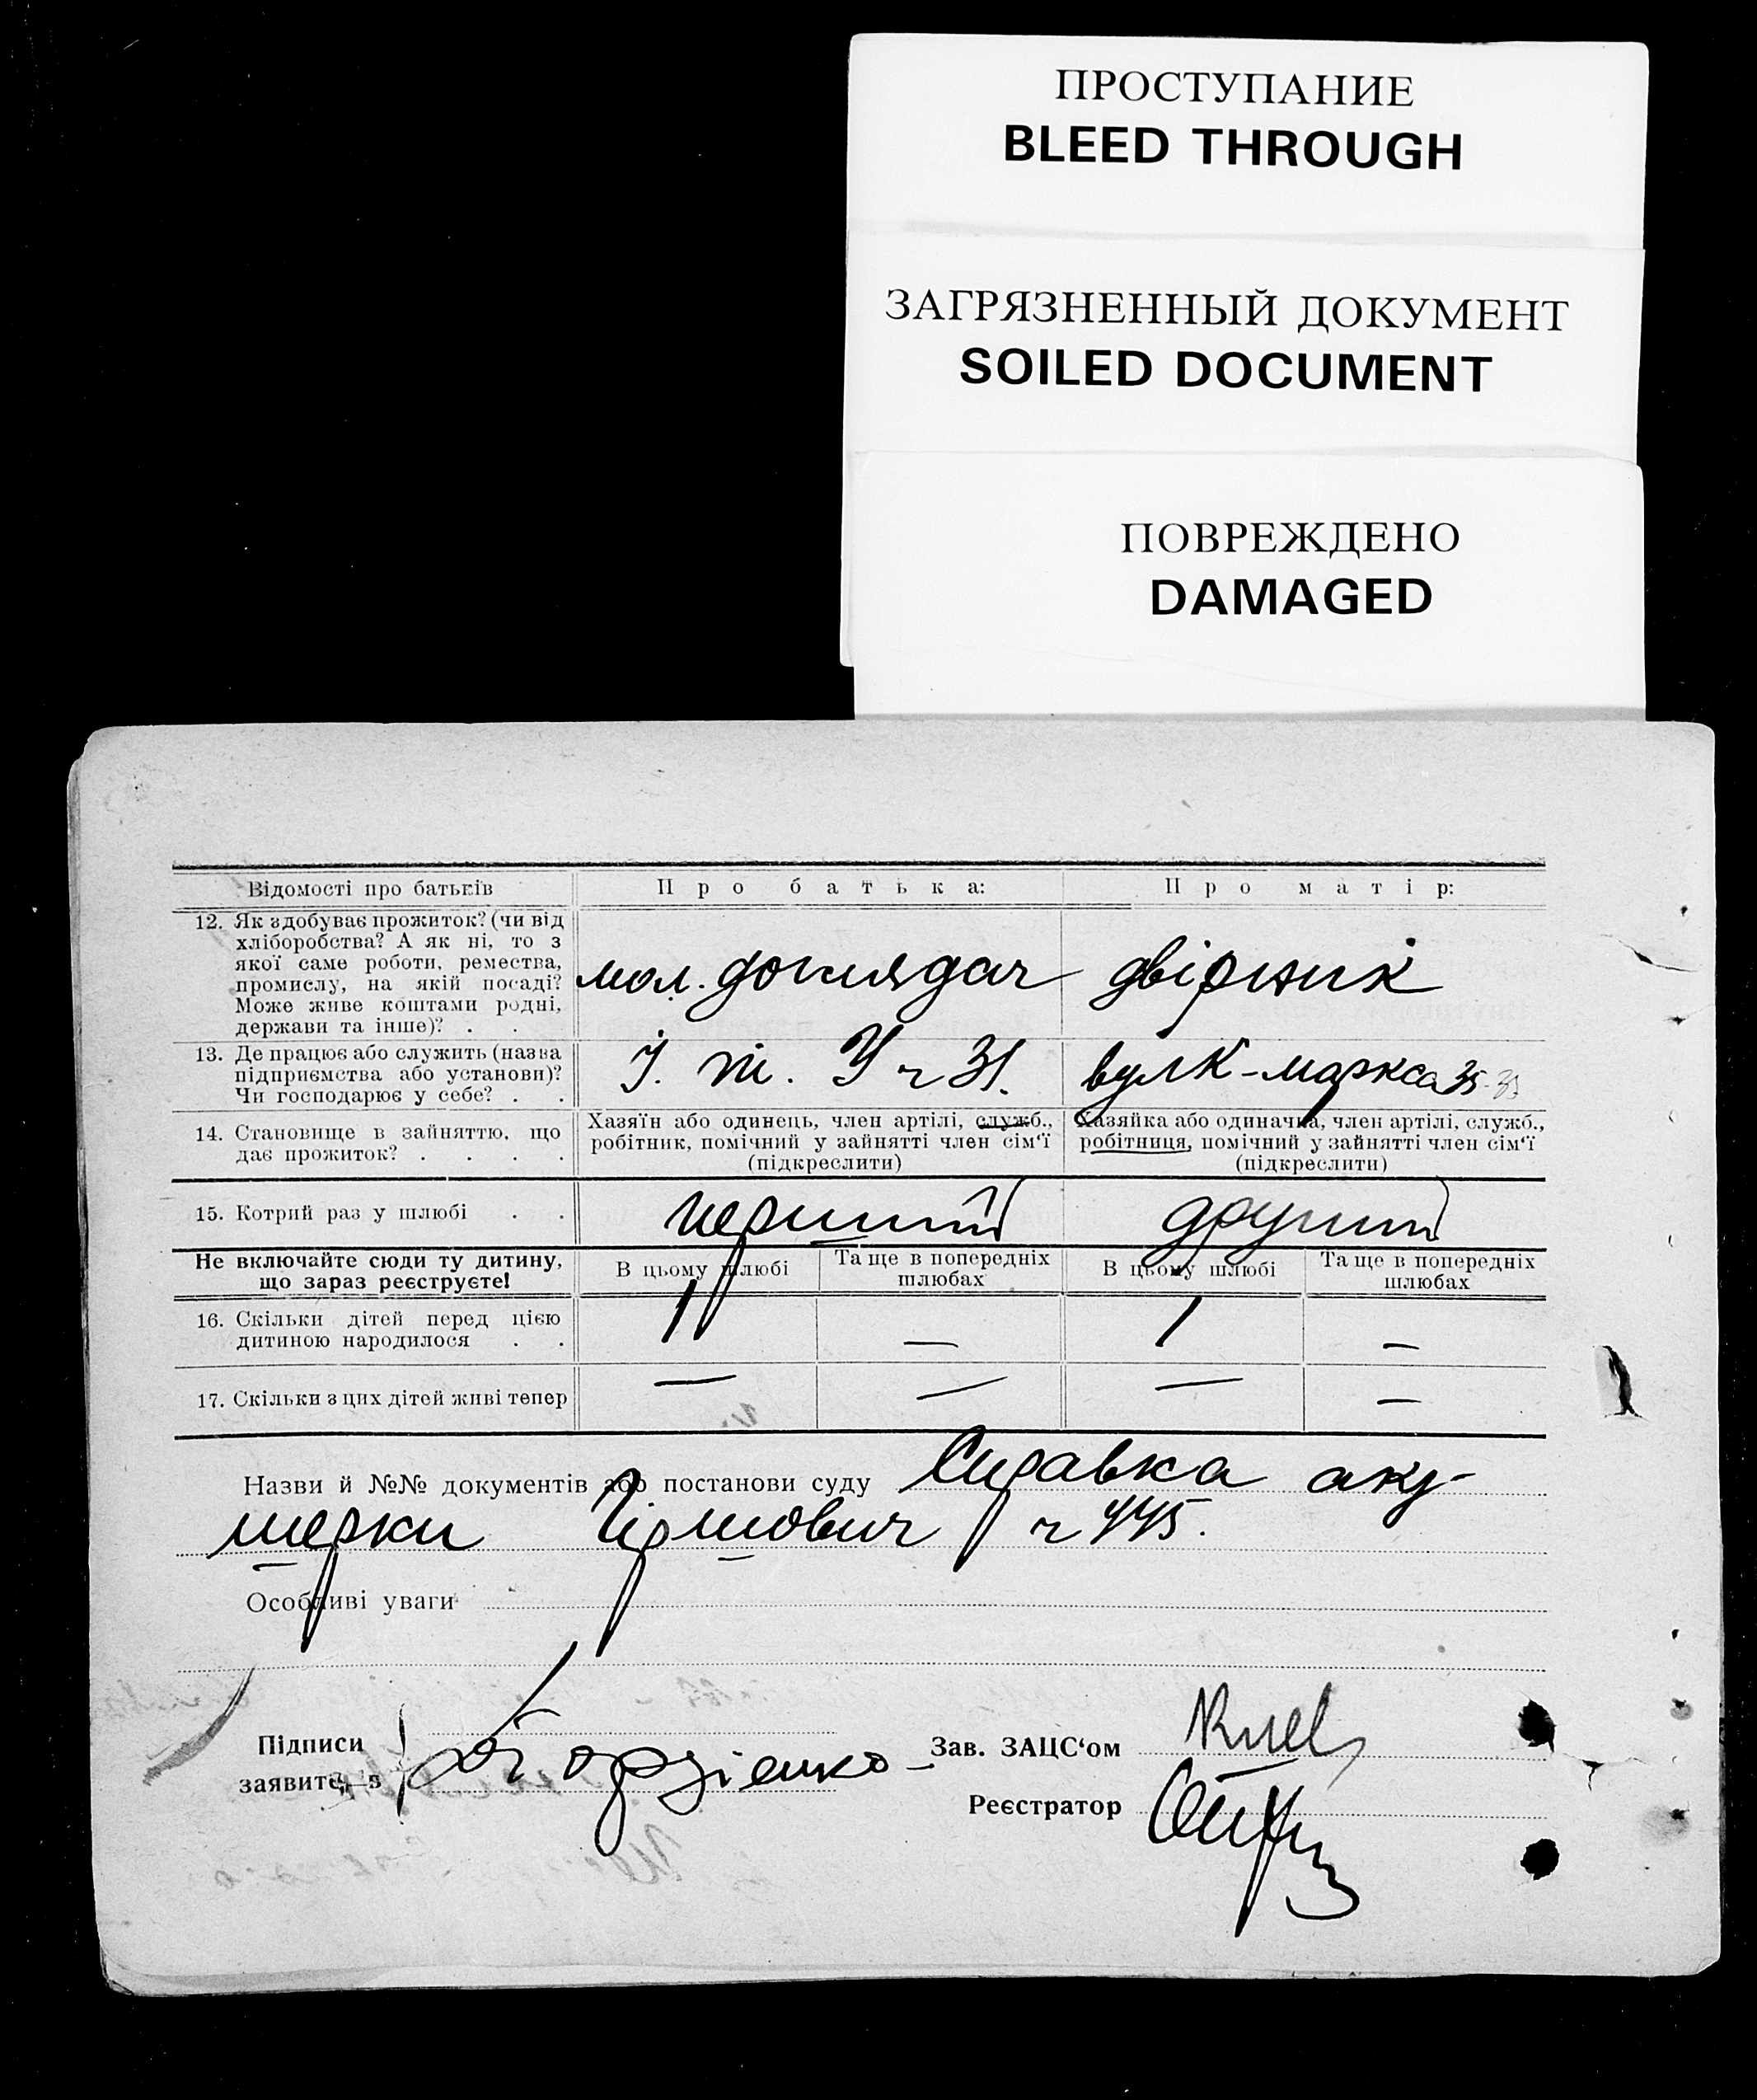 ПРОСТУПАНИЕ
BLEED THROUGH
ЗАГРЯЗНЕННЫЙ ДОКУМЕНТ
SOILED DOCUMENT
ПОВРЕЖДЕНО
DAMAGED
Відомості про батьків
Про батька:
Про матір:
12. Як здобуває прожиток? (чи від
хліборобства? А як ні, то з
якої саме роботи, ремества,
промислу, на якій посаді?
Може живе коштами родні,
держави та інше)? . .
мол. доглядач
двірник
13. Де працює або служить (назва
підприємства або установи)?
Чи господарює у себе? . .
ч 31.
вул К-маркса 35
14. Становище в зайняттю, що
дає прожиток? . . . .
Хазяїн або одинець, член артілі, служб.,
робітник, помічний у зайнятті член сім‘ї
(підкреслити)
Хазяйка або одиначка, член артілі, служб.,
робітниця, помічний у зайнятті член сім‘ї
(підкреслити)
15. Котрий раз у шлюбі . .
перший
другий
Не включайте сюди ту дитину,
що зараз реєструєте!
В цьому шлюбі
Та ще в попередніх
шлюбах
В цьому шлюбі
Та ще в попередніх
шлюбах
16. Скільки дітей перед цією
дитиною народилося . .
1 — 1 —
17. Скільки з цих дітей живі тепер
— — — —
Назви й №№ документів або постанови суду Справка аку-
шерки Гіршович ч 445.
Особливі уваги
Підписи
заявителів
Зав. ЗАЦС‘ом
Реєстратор